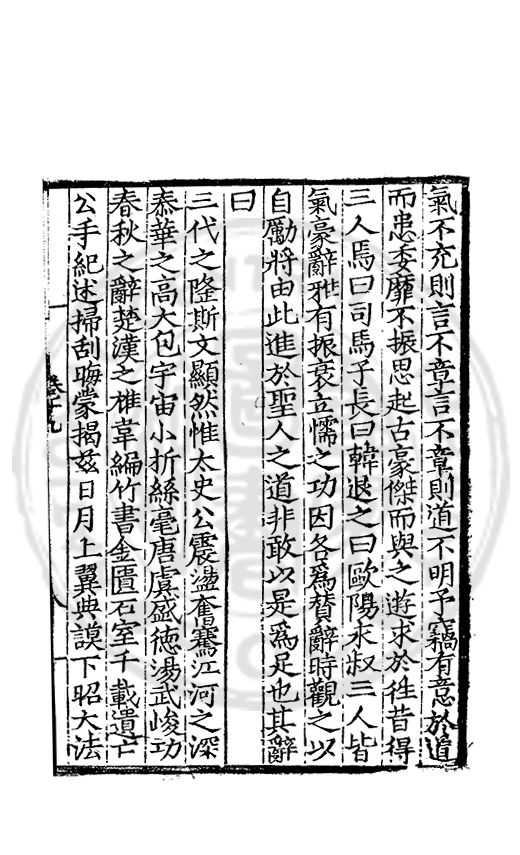 氣不充則言不章言不章則道不明予竊有意於道
而患委靡不振思起古豪傑而與之遊求於往昔得
三人焉曰司馬子長曰韓退之曰歐陽永叔三人皆
氣豪辭雅有振衰立懦之功因各爲贊辭時觀之以
自勵將由此進於聖人之道非敢以是爲足也其辭
曰
三代之隆斯文顯然惟太史公震盪奮騫江河之深
泰華之高大包宇宙小折絲毫唐虞盛德湯武峻功
春秋之辭楚漢之椎韋編竹書金匱石室千載遺亡
公手紀述掃刮晦蒙揭茲日月上翼典謨下昭大法
卷十九